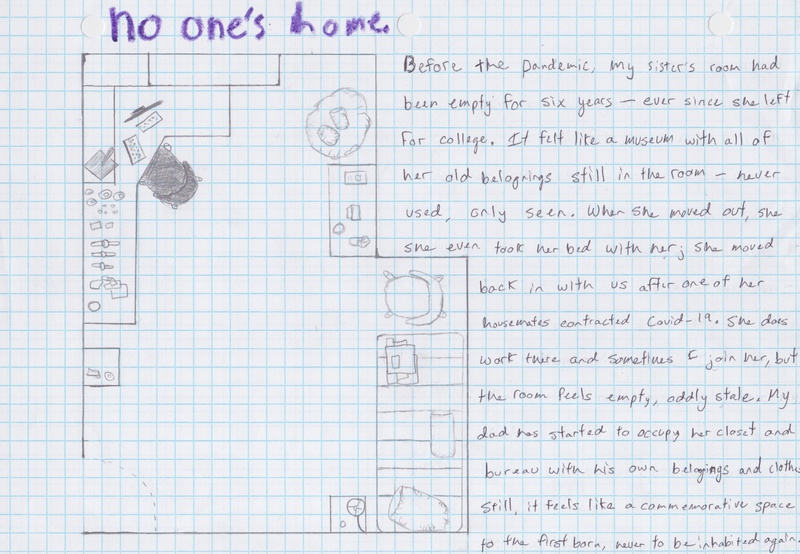 no one's home.
Before the pandemic, my sister's room had
been empty for six years — ever since she left
for college. It felt like a museum with all of
her old belognings still in the room — never
used, only seen. When she moved out, she
she even took her bed with her; she moved
back in with us after one of her
housemates contracted Covid-19. She does
work there and sometimes I join her, but
the room feels empty, oddly stale. My
dad has started to occupy her closet and
bureau with his own belogings and clothes
Still, it feels like a commemorative space
to the first born, never to be inhabited again.